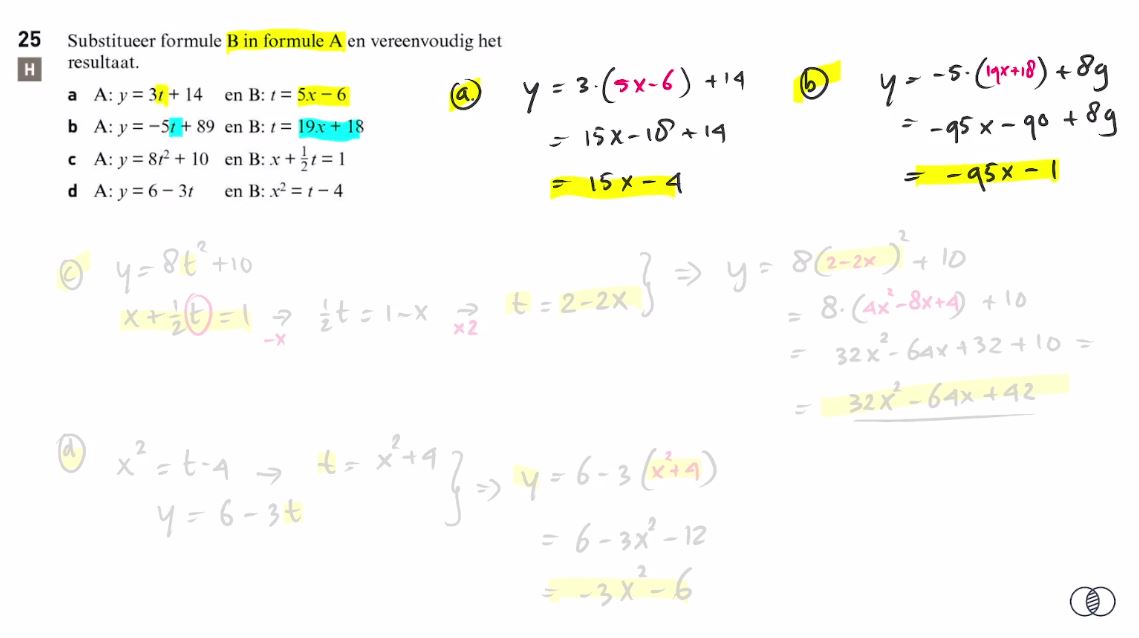 25 Substitueer formule B in formule A en vereenvoudig het
H resultaat.
a A: y = 3t + 14 en B: t = 5x − 6
b A: y = −5t + 89 en B: t = 19x + 18
c A: y = 8t² + 10 en B: x + ½t = 1
d A: y = 6 − 3t en B: x² = t − 4
a. y = 3·(5x−6) + 14
= 15x−18 + 14
= 15x − 4
b y = −5·(19x+18) + 89
= −95x − 90 + 89
= −95x − 1
c y = 8t² + 10
x + ½t = 1 → −x ½t = 1−x → x2 t = 2−2x } ⇒ y = 8(2−2x)² + 10
= 8·(4x²−8x+4) + 10
= 32x² − 64x + 32 + 10 =
= 32x² − 64x + 42
d x² = t−4 → t = x²+4
y = 6 − 3t } ⇒ y = 6 − 3(x²+4)
= 6 − 3x² − 12
= −3x² − 6